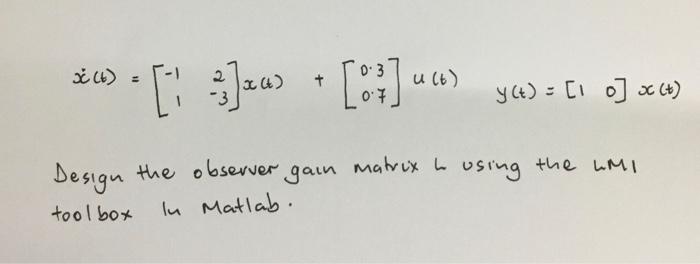 ẋ(t) = [-1 2; 1 -3] x(t) + [0.3; 0.7] u(t) y(t) = [1 0] x(t)
Design the observer gain matrix L using the LMI
toolbox In Matlab.